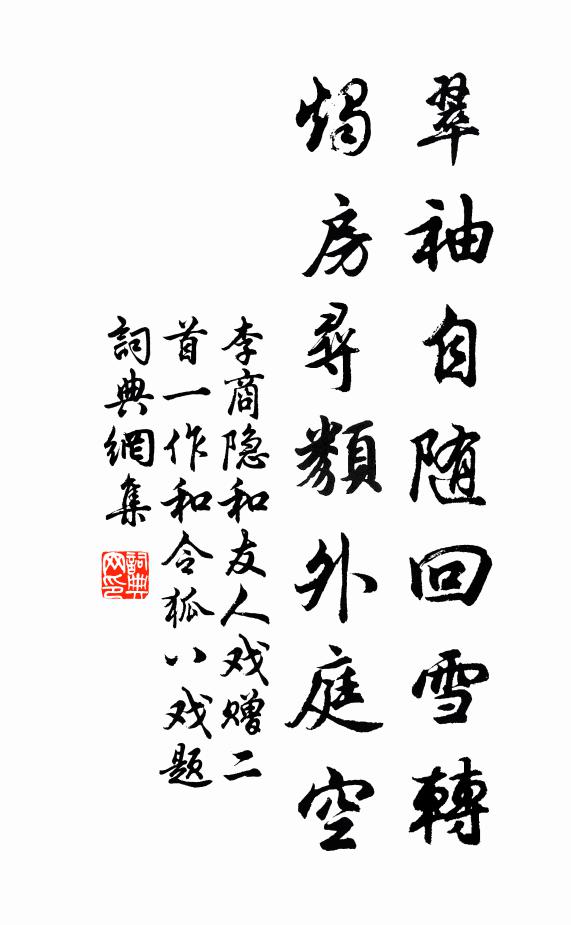 翠袖自随回雪轉
燭房尋類外庭空
李商隐和友人戏赠二
首一作和令狐八戏题
詞典網集
詞典
网印